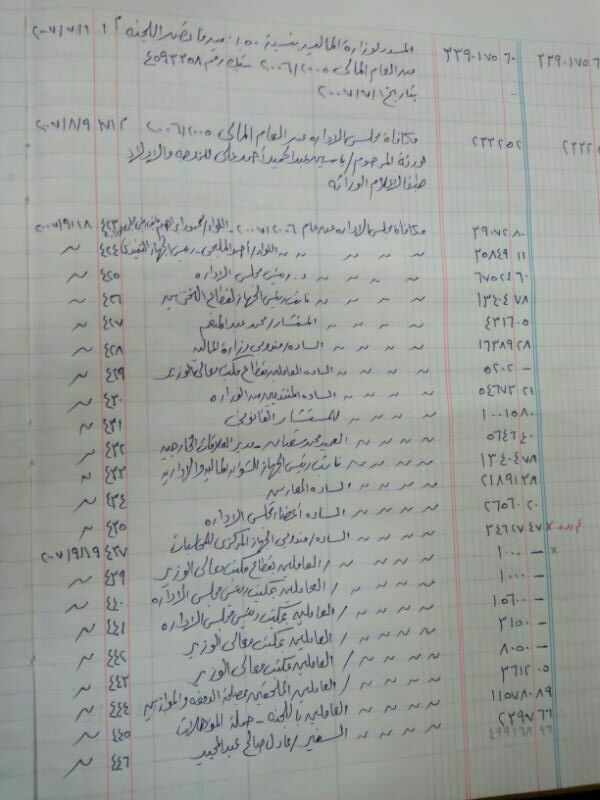 ٣٣٩٠١٧٥ ٦٠ المسدد لوزارة المالية بنسبة ١٥٠ ١ م ٢٠٠٧/٧/١
عن العام المالى ٢٠٠٦/٢٠٠٥ شيك رقم ٤٥٩٣٢٥٨
بتاريخ ٢٠٠٧/٧/١
٢٣٣٢٥٢ مكافأة مجلس الإدارة عن العام المالى ٢٠٠٦/٢٠٠٥ ٢٠٠٧/٨/٩
ورثة المرحوم / ياسين عبد الحميد أحمد على للزوجة والأولاد
طبقا لإعلام الوراثة
٣٩٠٧٢ ٨٠ مكافأة مجلس الإدارة عن عام ٢٠٠٧/٢٠٠٦ - اللواء / محمود ابراهيم ٤٢٣ ٢٠٠٧/٩/١٨
٣٥٨٤٩ ١١ ~ ~ ~ ~ اللواء / أحمد - رئيس الجهاز التنفيذى ٤٢٤ ~
٦٧٥٢٤ ٦٠ ~ ~ ~ ~ رئيس مجلس الإدارة ٤٢٥ ~
١٣٤٠٤ ٧٨ ~ ~ ~ ~ نائب رئيس الجهاز لقطاع ٤٢٦ ~
٤٣١٦ ٠٥ ~ ~ ~ ~ المستشار / محمد عبد المنعم ٤٢٧ ~
١٦٣٨٩ ٢٨ ~ ~ ~ ~ السادة / مندوبى وزارة المالية ٤٢٨ ~
٥٢٠٢ — ~ ~ ~ ~ السادة العاملين بقطاع مكتب معالى الوزير ٤٢٩ ~
٥٤٦٧٣ ٢١ ~ ~ ~ ~ السادة المنتدبين من الوزارة ٤٣٠ ~
١٠٠١٥ ٨٠ ~ ~ ~ ~ للمستشار القانونى ٤٣١ ~
٥٦٤٦ ٤٠ ~ ~ ~ ~ العميد / محمد - مدير العلاقات الخارجية ٤٣٢ ~
١٣٤٠٤ ٧٨ ~ ~ ~ ~ نائب رئيس الجهاز للشئون المالية والإدارية ٤٣٣ ~
٢١٨٩١ ٣٨ ~ ~ ~ ~ السادة المعارين ٤٣٤ ~
٢٦٥٦٠ ٢٠ ~ ~ ~ ~ السادة أعضاء مجلس الإدارة ٤٣٥ ~
× ٣٤٦٢٧ ٤٧ ~ ~ ~ ~ السادة / مندوبى الجهاز المركزى للمحاسبات ٤٣٧ ٢٠٠٧/٩/١٩
× ١٠٠٠ — ~ ~ ~ ~ / العاملين بقطاع مكتب معالى الوزير ٤٣٩ ~
١٠٠٠ — ~ ~ ~ ~ / العاملين بمكتب رئيس مجلس الإدارة ٤٤٠ ~
١٥٦٠٠ — ~ ~ ~ ~ / العاملين بمكتب رئيس مجلس الإدارة ٤٤١ ~
٣١٥٠ — ~ ~ ~ ~ / العاملين بمكتب معالى الوزير ٤٤٢ ~
٨٠٥٠ — ~ ~ ~ ~ / العاملين بمكتب معالى الوزير ٤٤٣ ~
٣٦١٢ ٠٥ ~ ~ ~ ~ / العاملين الملحقين بمصلحة الدمغة والموازين ٤٤٤ ~
١١٥٧٨ ٠٨٩ ~ ~ ~ ~ العاملين باللجنة - حملة المؤهلات ٤٤٥ ~
٢٣٩٧ ٦٦ ~ ~ ~ ~ السفير / عادل صالح عبد المجيد ٤٤٦ ~
٤٩٩١٦٨ ٤٦